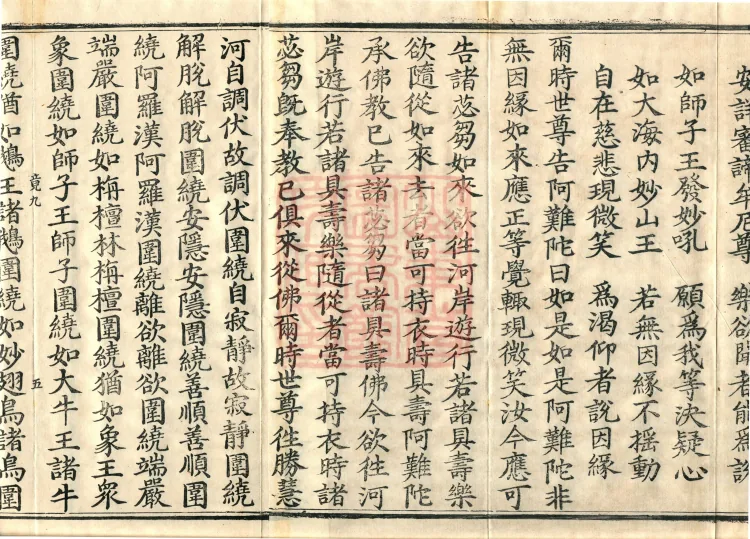 安詳審諦牟尼尊　樂欲聞者能為說
如師子王發妙吼　願為我等決疑心
如大海內妙山王　若無因緣不搖動
自在慈悲現微笑　為渴仰者說因緣
爾時世尊告阿難陀曰如是如是阿難陀非
無因緣如來應正等覺輙現微笑汝今應可
告諸苾芻如來欲往河岸遊行若諸具壽樂
欲隨從如來去者當可持衣時具壽阿難陀
承佛教已告諸苾芻曰諸具壽佛今欲往河
岸遊行若諸具壽樂隨從者當可持衣時諸
苾芻既奉教已俱來從佛爾時世尊往勝慧
河自調伏故調伏圍繞自寂靜故寂靜圍繞
解脫解脫圍繞安隱安隱圍繞善順善順圍
繞阿羅漢阿羅漢圍繞離欲離欲圍繞端嚴
端嚴圍繞如栴檀林栴檀圍繞猶如象王眾
象圍繞如師子王師子圍繞如大牛王諸牛
竟九　五
圍繞猶如鵝王諸鵝圍繞如妙翅鳥諸鳥圍